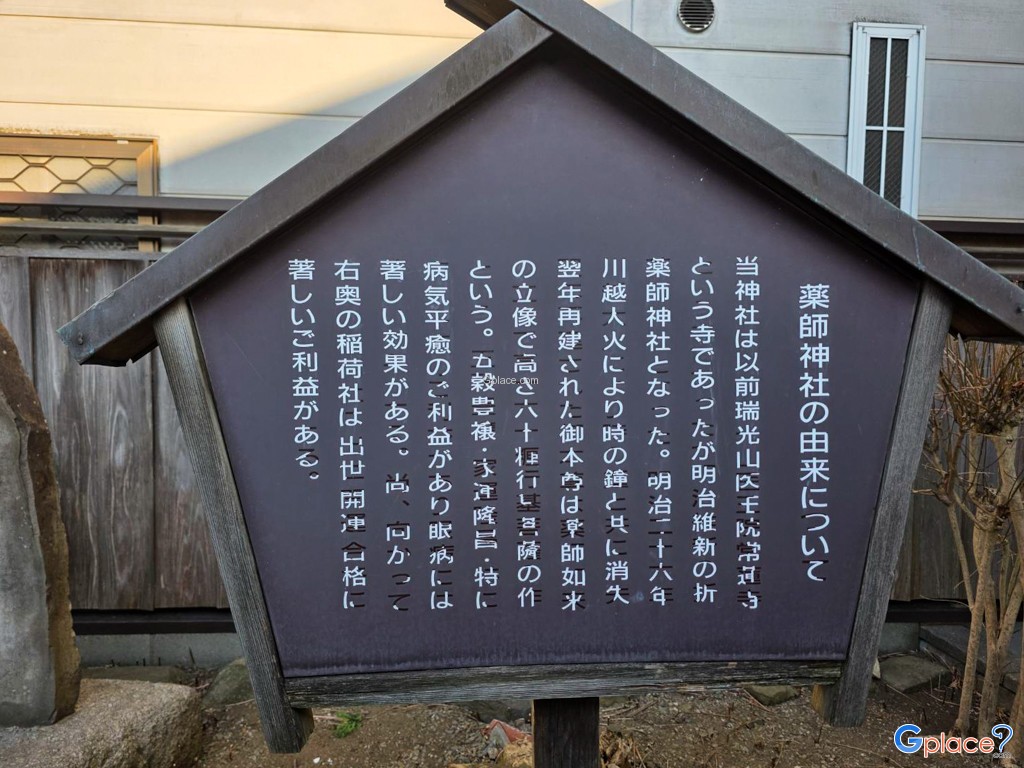 薬師神社の由来について
当神社は以前瑞光山医王院常蓮寺
という寺であったが明治維新の折
薬師神社となった。明治二十六年
川越大火により時の鐘と共に消失
翌年再建された御本尊は薬師如来
の立像で高さ六十糎行基菩薩の作
という。五穀豊穣・家運隆昌・特に
病気平癒のご利益があり眼病には
著しい効果がある。尚、向かって
右奥の稲荷社は出世開運合格に
著しいご利益がある。
Gplace.com
Gplace?
.com